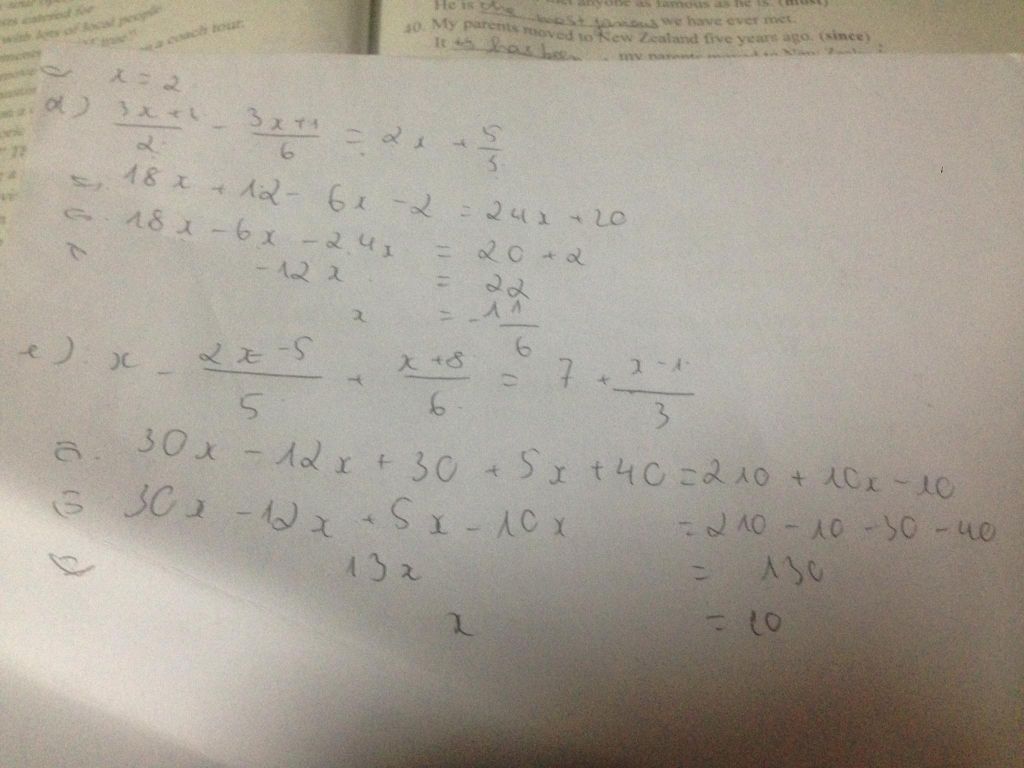 as he is. (must)
He is the most famous we have ever met.
40. My parents moved to New Zealand five years ago. (since)
It is has been my parents moved to New
coach tour.
with lots of local people
⇔ x = 2
d) \frac{3x+2}{2} - \frac{3x+1}{6} = 2x + \frac{5}{3}
⇔ 18x + 12 - 6x - 2 = 24x + 20
⇔ 18x - 6x - 24x = 20 + 2
-12x = 22
x = -\frac{11}{6}
e) x - \frac{2x-5}{5} + \frac{x+8}{6} = 7 + \frac{x-1}{3}
⇔ 30x - 12x + 30 + 5x + 40 = 210 + 10x - 10
⇔ 30x - 12x + 5x - 10x = 210 - 10 - 30 - 40
⇔ 13x = 130
x = 10